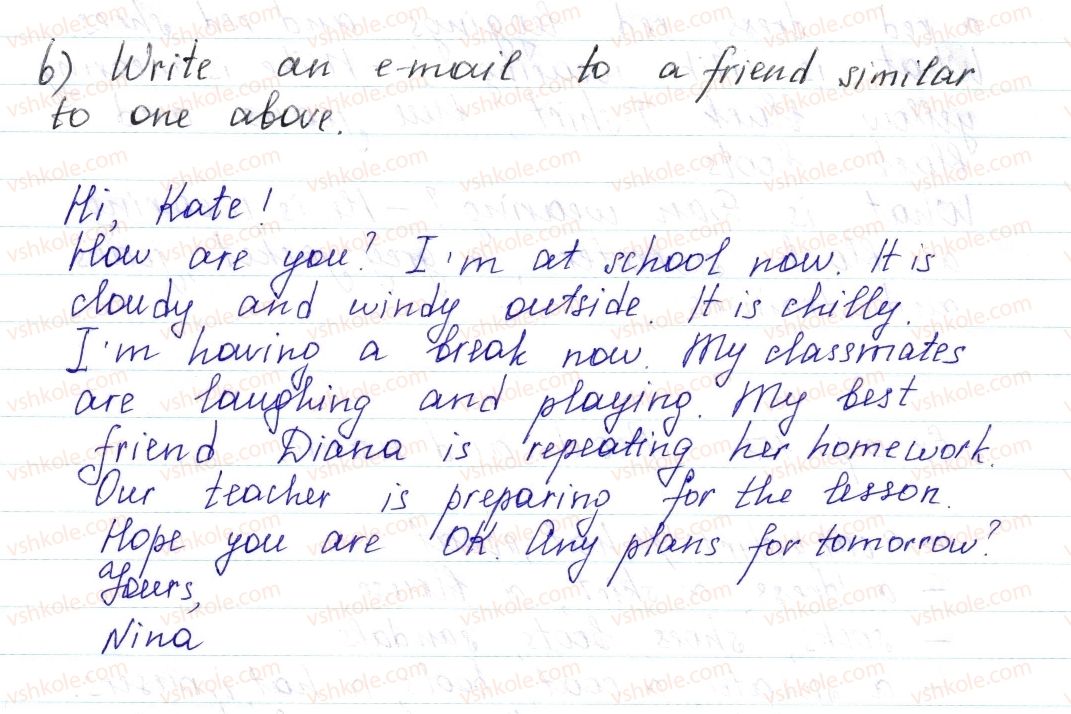 b) Write an e-mail to a friend similar
to one above.
Hi, Kate!
How are you? I'm at school now. It is
cloudy and windy outside. It is chilly.
I'm having a break now. My classmates
are laughing and playing. My best
friend Diana is repeating her homework.
Our teacher is preparing for the lesson.
Hope you are OK. Any plans for tomorrow?
Yours,
Nina
vshkole.com